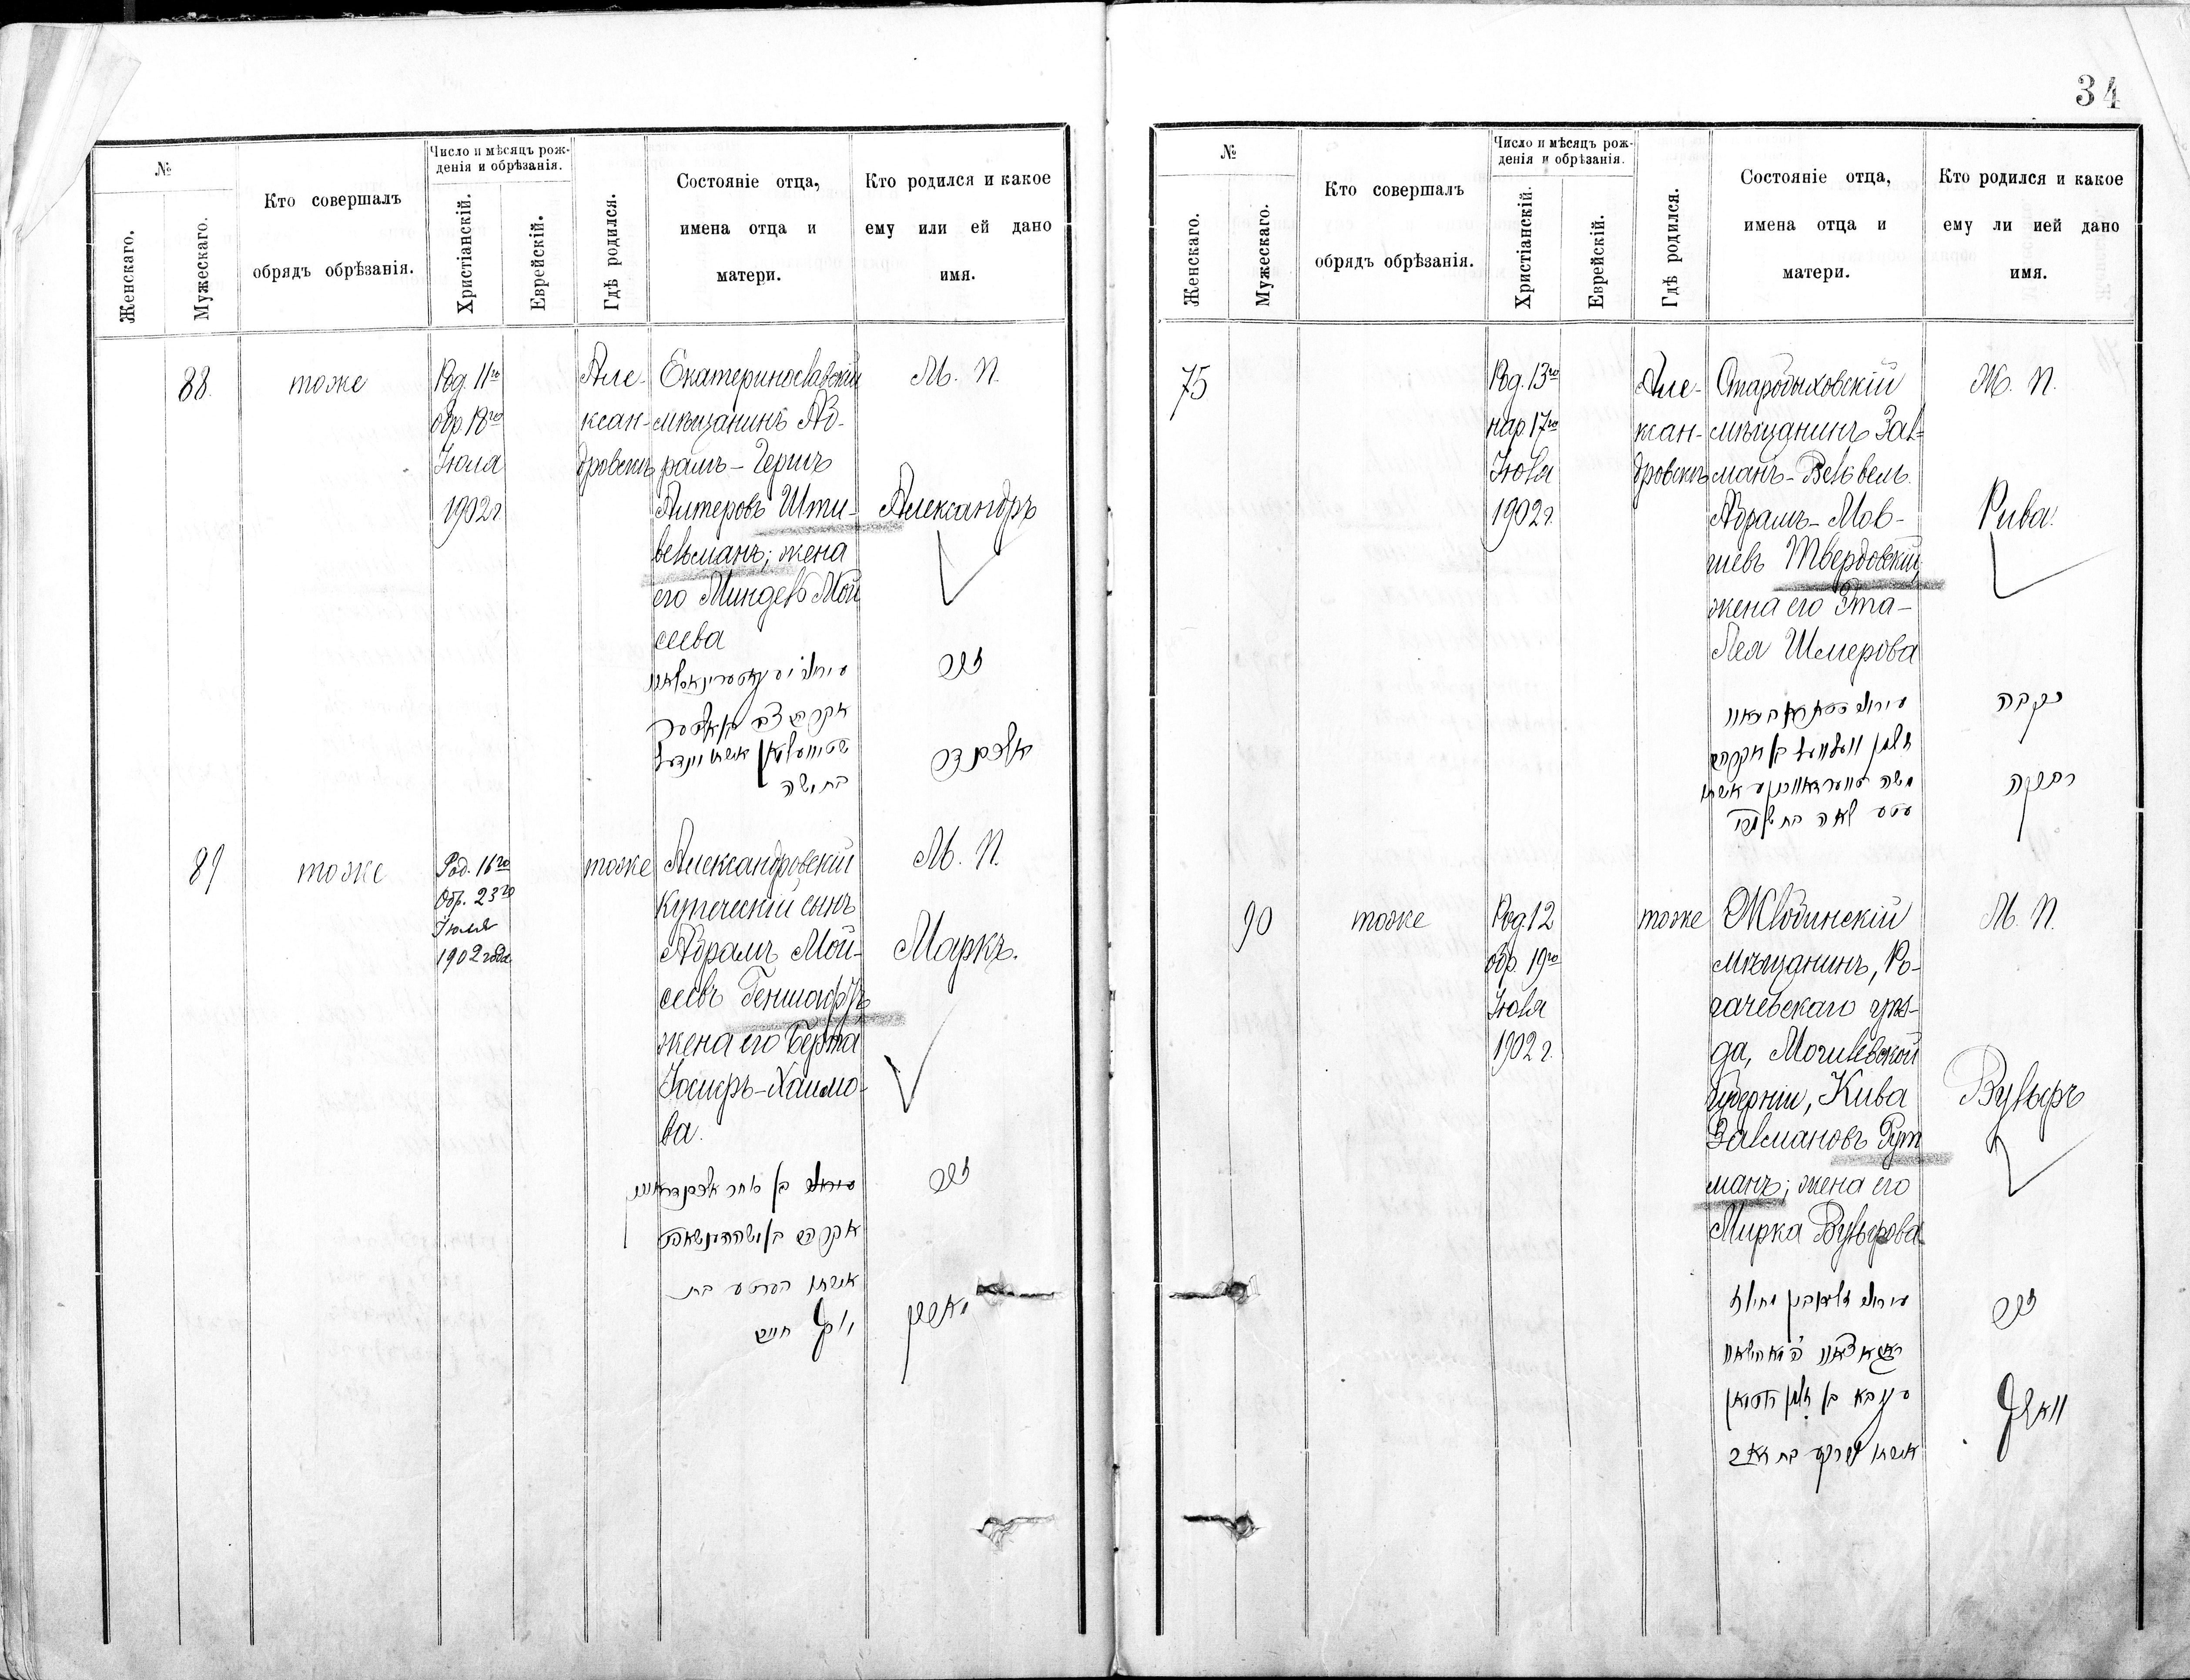 34
№
Женскаго.
Мужескаго.
Кто совершалъ
обрядъ обрѣзанія.
Число и мѣсяцъ рож-
денія и обрѣзанія.
Христіанскій.
Еврейскій.
Гдѣ родился.
Состояніе отца,
имена отца и
матери.
Кто родился и какое
ему или ей дано
имя.
88.
тоже
Род. 11го
обр 18го
Іюля
1902 г.
Але-
ксан-
дровскъ
Екатеринославскій
мѣщанинъ Аб-
рамъ-Гершъ
Алтеровъ Шти-
вельманъ; жена
его Миндель Мой
сеева
М. П.
Александръ
זכר
בת משה
89
тоже
Род. 16го
Обр. 23го
Іюля
1902 года
тоже
Александровскій
купеческій сынъ
Абрамъ Мой-
сеевъ Геншафтъ
жена его Берта
Іосифъ-Хаимо-
ва.
М. П.
Маркъ.
זכר
אשתו בערטע בת
יוסף חיים
№
Женскаго.
Мужескаго.
Кто совершалъ
обрядъ обрѣзанія.
Число и мѣсяцъ рож-
денія и обрѣзанія.
Христіанскій.
Еврейскій.
Гдѣ родился.
Состояніе отца,
имена отца и
матери.
Кто родился и какое
ему ли ией дано
имя.
75
Род. 13го
нар. 17го
Іюля
1902 г.
Але-
ксан-
дровскъ
Старобыховскій
мѣщанинъ Зал-
манъ-Вельвель
Абрамъ-Мов-
шевъ Твердовскій,
жена его Эта-
Лея Шмерова
Ж. П.
Рива.
זלמן וועלוועל בן אברהם
עטע לאה בת שמערי
נקבה
רבקה
90
тоже
Род. 12
обр. 19го
Іюля
1902 г.
тоже
Жлобинскій
мѣщанинъ, Ро-
гачевскаго уѣз-
да, Могилевской
губерніи, Кива
Залмановъ Рут
манъ; жена его
Мирка Вульфова
М. П.
Вульфъ
זכר
עקיבא בן זלמן רוטמאן
אשתו מירקע בת זאב
וואלף